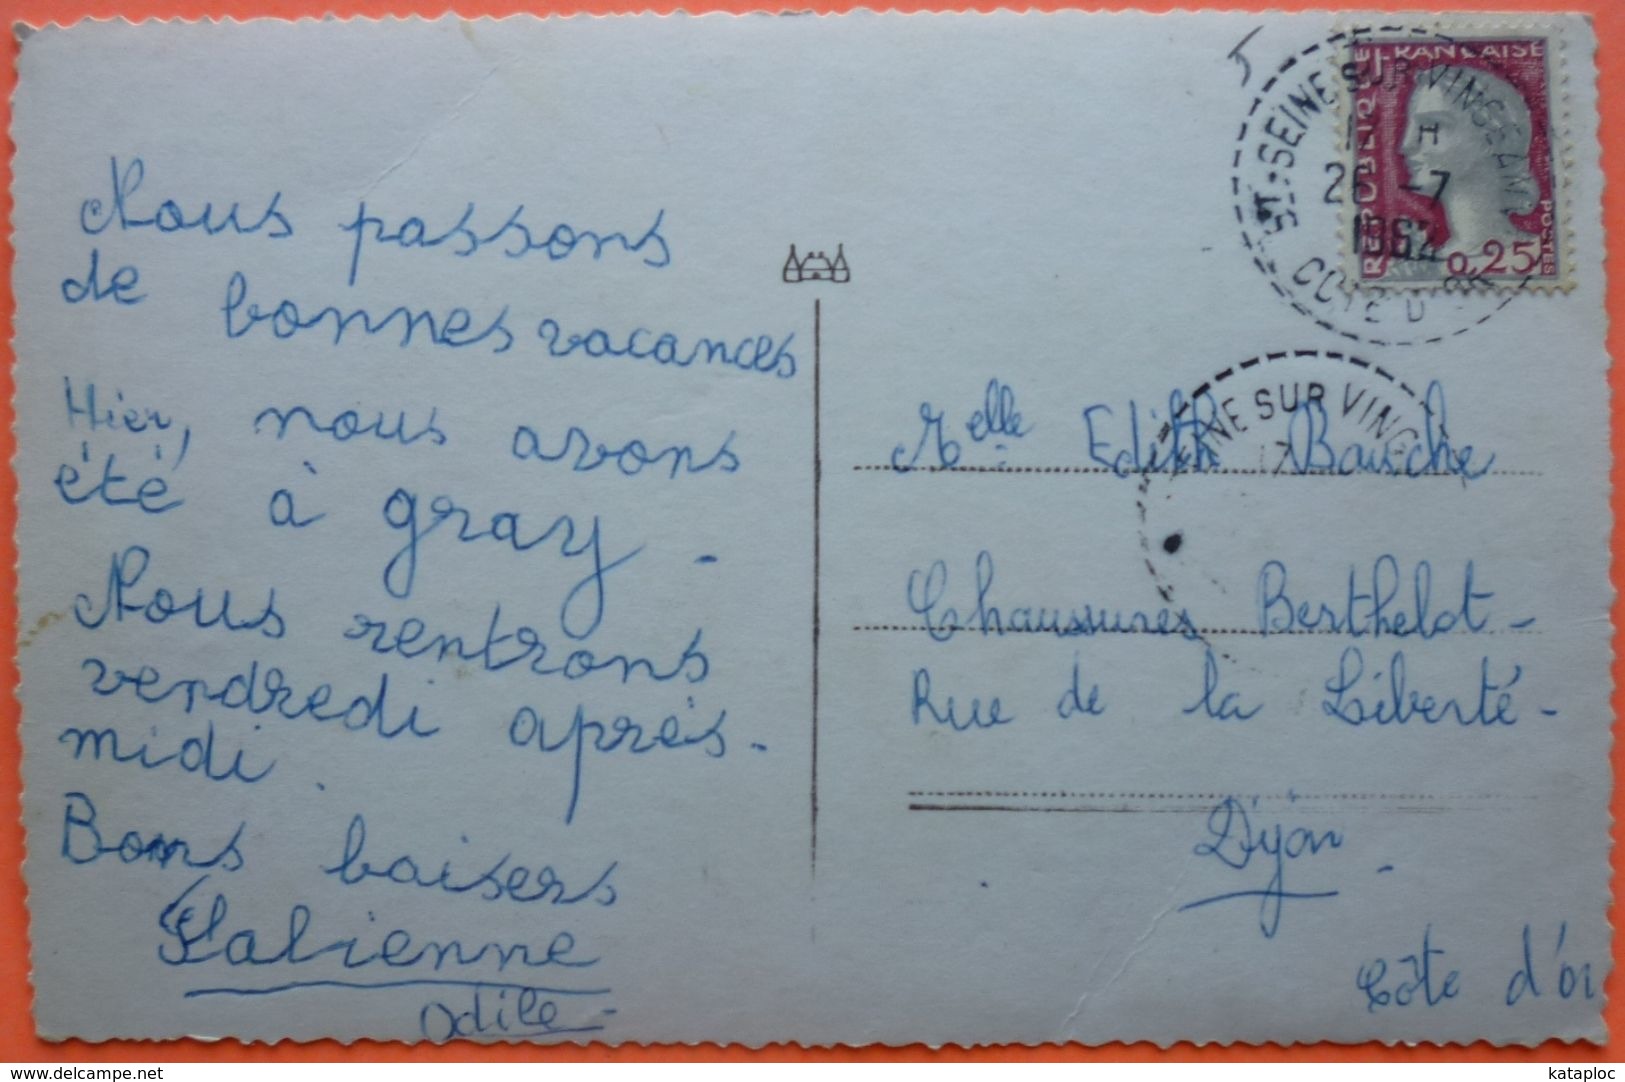 Nous passons
de bonnes vacances
Hier, nous avons
été à gray -
Nous rentrons
vendredi après-
midi.
Bons baisers
Fabienne
Odile -
RÉPUBLIQUE FRANÇAISE
POSTES
0,25
ST-SEINE SUR VINGEANNE
26 -7
1962
COTE D'OR
EINE SUR VING
Melle Edith Bauche
Chaussures Berthelot -
Rue de la Liberté -
Dijon -
Côte d'or
www.delcampe.net
kataploc